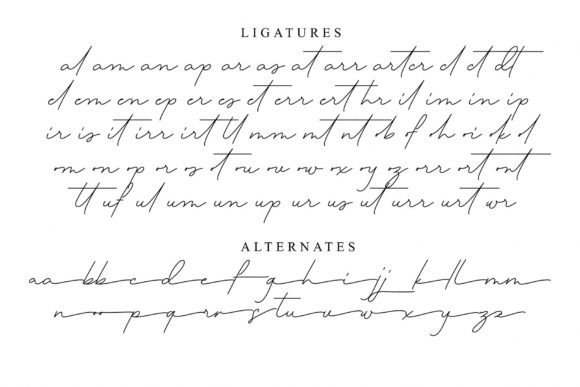 LIGATURES
al am an ap ar as at arr cl ct dt
el em en ep er es et err ert hr il im in ip
ir is it irr irt mm mt nt ob of oh oi ok ol
om on op or os ot ou ov ow ox oy oz orr ort ont
tt uf ul um un up ur us ut urr urt wr
ALTERNATES
aa bb c d e f g h i jj k ll mm
n oo p q r s t u v w x y z